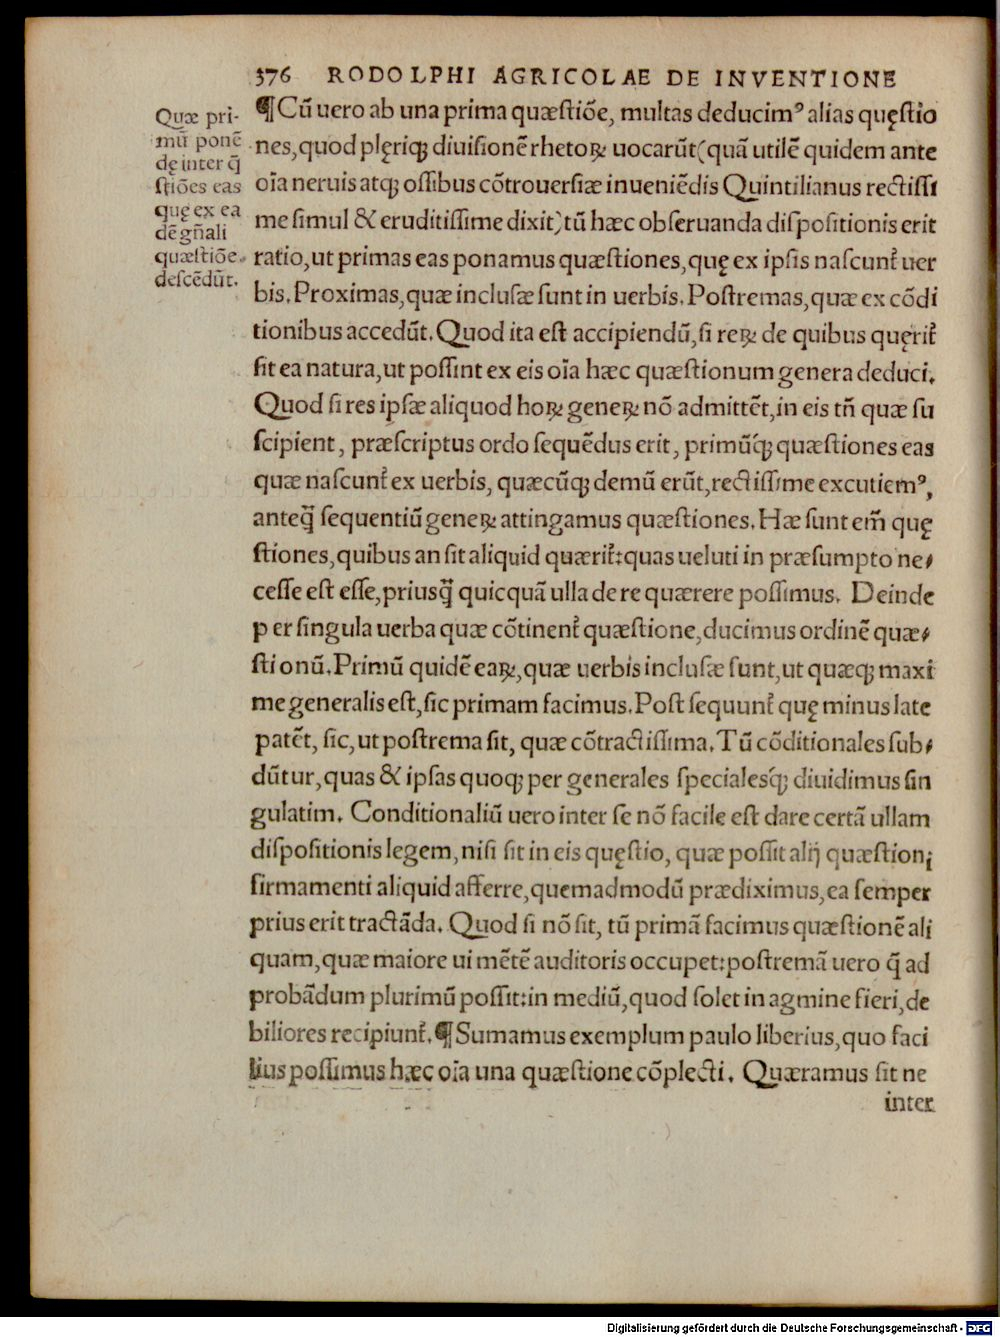 376 RODOLPHI AGRICOLAE DE INVENTIONE
Quæ pri-
mũ ponẽ
dę inter q̃
stiões eas
quę ex ea
dẽ gñali
quæstiõe
descẽdũt.
¶Cũ uero ab una prima quæstiõe, multas deducimꝰ alias quęstio
nes, quod plęriqꝫ diuisionẽ rhetoꝝ uocarũt(quã utilẽ quidem ante
oĩa neruis atqꝫ ossibus cõtrouersiæ inueniẽdis Quintilianus rectissi
me simul & eruditissime dixit)tũ hæc obseruanda dispositionis erit
ratio, ut primas eas ponamus quæstiones, quę ex ipsis nascunt᷑ uer
bis. Proximas, quæ inclusæ sunt in uerbis. Postremas, quæ ex cõdi
tionibus accedũt. Quod ita est accipiendũ, si reꝝ de quibus quęrit᷑
sit ea natura, ut possint ex eis oĩa hæc quæstionum genera deduci.
Quod si res ipsæ aliquod hoꝝ geneꝝ nõ admittẽt, in eis tñ quæ su
scipient, præscriptus ordo sequẽdus erit, primũqꝫ quæstiones eas
quæ nascunt᷑ ex uerbis, quæcũqꝫ demũ erũt, rectissime excutiemꝰ,
anteq̃ sequentiũ geneꝝ attingamus quæstiones. Hæ sunt em̃ quę
stiones, quibus an sit aliquid quærit᷑: quas ueluti in præsumpto ne⸗
cesse est esse, priusq̃ quicquã ulla de re quærere possimus. Deinde
per singula uerba quæ cõtinent᷑ quæstione, ducimus ordinẽ quæ⸗
stionũ. Primũ quidẽ eaꝝ, quæ uerbis inclusæ sunt, ut quæqꝫ maxi
me generalis est, sic primam facimus. Post sequunt᷑ quę minus late
patẽt, sic, ut postrema sit, quæ cõtractissima. Tũ cõditionales sub⸗
dũtur, quas & ipsas quoqꝫ per generales specialesqꝫ diuidimus sin
gulatim. Conditionaliũ uero inter se nõ facile est dare certã ullam
dispositionis legem, nisi sit in eis quęstio, quæ possit alij quæstioni
firmamenti aliquid afferre, quemadmodũ prædiximus, ea semper
prius erit tractãda. Quod si nõ sit, tũ primã facimus quæstionẽ ali
quam, quæ maiore ui mẽtẽ auditoris occupet: postremã uero q̃ ad
probãdum plurimũ possit: in mediũ, quod solet in agmine fieri, de
biliores recipiunt᷑. ¶Sumamus exemplum paulo liberius, quo faci
lius possimus hæc oĩa una quæstione cõplecti. Quæramus sit ne
inter
Digitalisierung gefördert durch die Deutsche Forschungsgemeinschaft - DFG